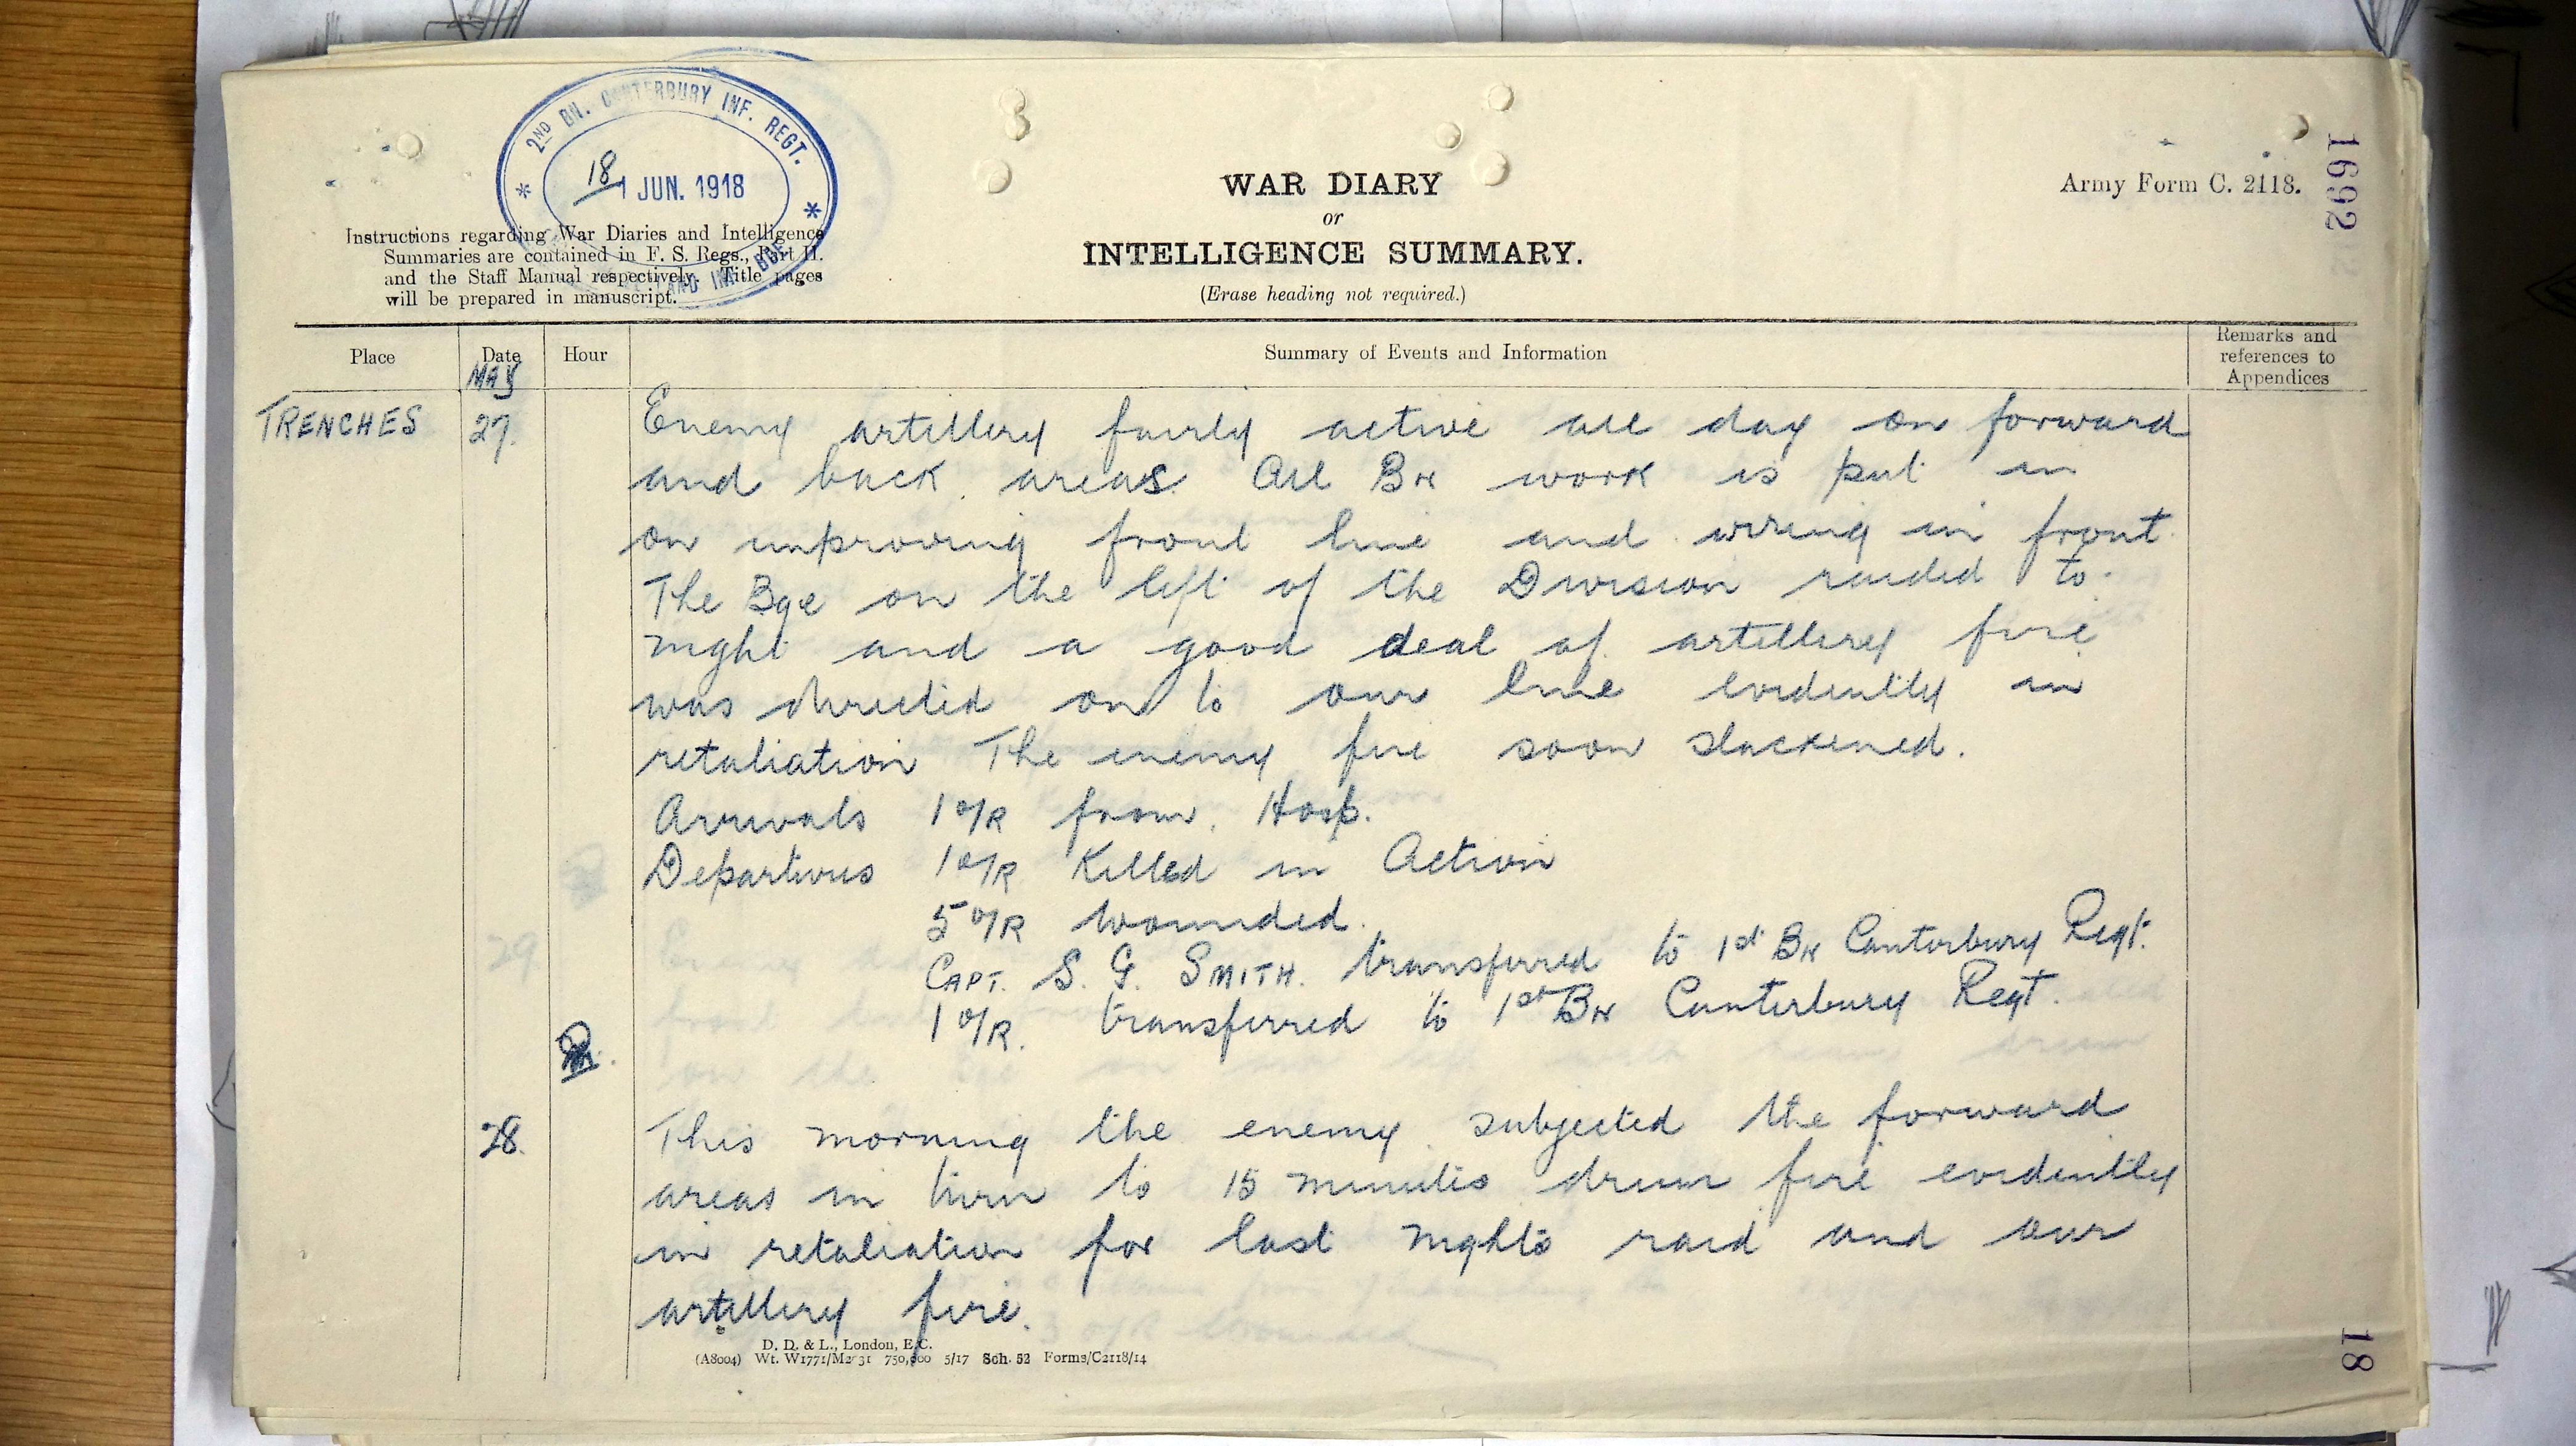 2ND BN. CANTERBURY INF. REGT.
18
1 JUN. 1918
Instructions regarding War Diaries and Intelligence
Summaries are contained in F. S. Regs., Part II.
and the Staff Manual respectively. Title pages
will be prepared in manuscript.
WAR DIARY
or
INTELLIGENCE SUMMARY.
(Erase heading not required.)
Army Form C. 2118.
1692
Place
Date
MAY
Hour
Summary of Events and Information
Remarks and
references to
Appendices
TRENCHES 27. Enemy artillery fairly active all day on forward
and back areas. All BN work is put in
on improving front line and wiring in front.
The Bge on the left of the Division raided to
night and a good deal of artillery fire
was directed on to our line evidently in
retaliation The enemy fire soon slackened.
Arrivals 1 O/R from Hosp.
Departures 1 O/R Killed in Action
5 O/R wounded.
CAPT. S. G. SMITH. transferred to 1st BN Canterbury Regt.
1 O/R. transferred to 1st BN Canterbury Regt.
28. This morning the enemy subjected the forward
areas in turn to 15 minutes drum fire evidently
in retaliation for last nights raid and our
artillery fire.
D. D. & L., London, E.C.
(A8004) Wt. W1771/M2 31 750,000 5/17 Sch. 52 Forms/C2118/14
18